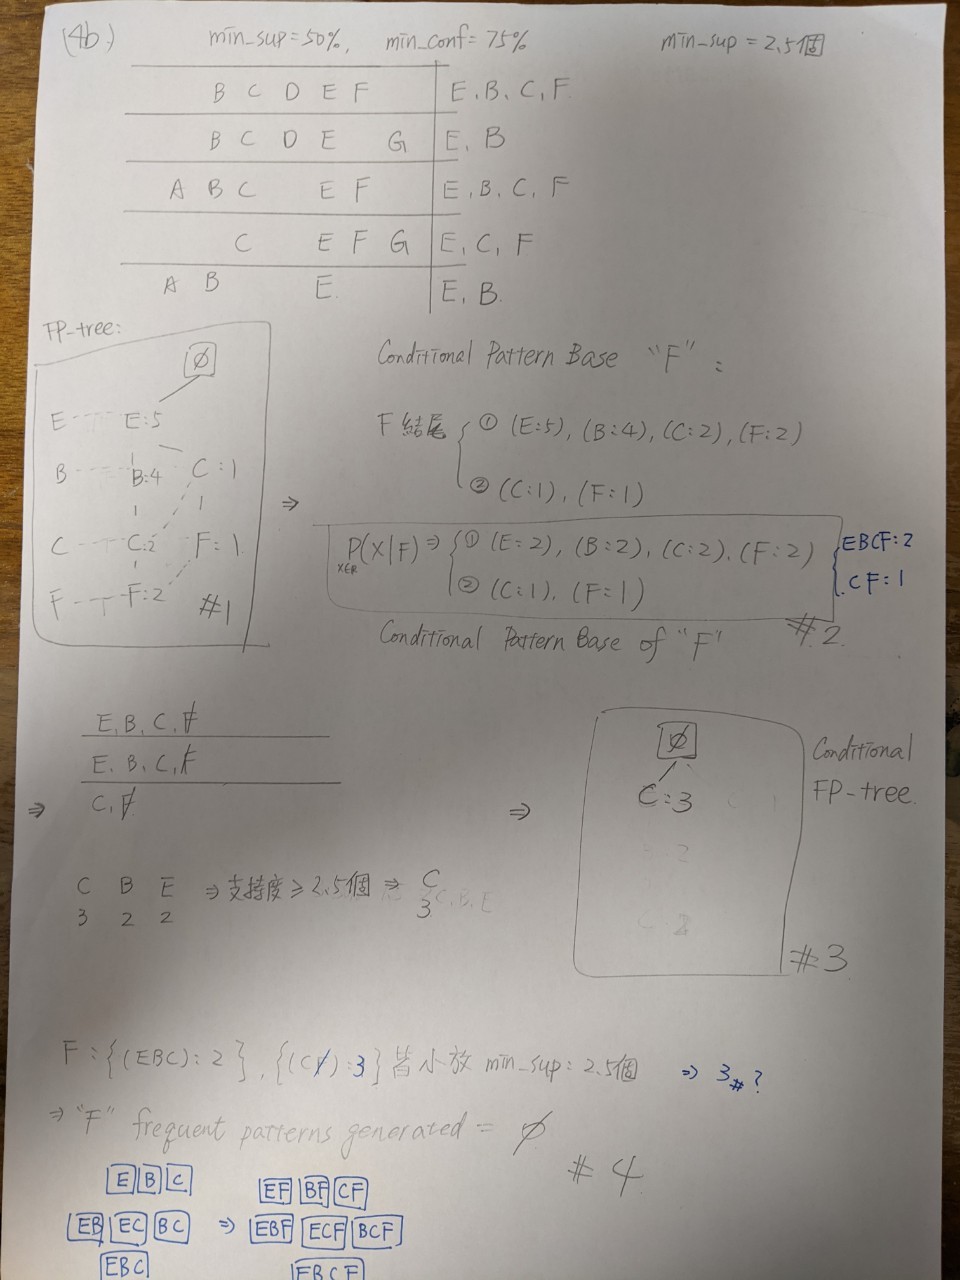 (4b.) min_sup=50%, min_conf=75% min_sup=2.5個
B C D E F E.B.C,F
B C D E G E, B
A B C E F E,B,C,F
C E F G E, C, F
A B E. E, B.
FP-tree:
∅
E E:5
B B:4 C:1
C C:2 F:1
F F:2 #1
Conditional Pattern Base "F":
F結尾 ① (E:5), (B:4), (C:2), (F:2)
② (C:1), (F:1)
⇒
P(X|F) ⇒ ① (E:2), (B:2), (C:2), (F:2) EBCF:2
② (C:1), (F:1) CF:1
Conditional Pattern Base of "F" #2.
E, B, C, F
E. B, C, F
⇒ C, F
C B E ⇒ 支持度≥2.5個 ⇒ C
3 2 2 3
C, B, E
⇒
∅
C:3
Conditional
FP-tree.
#3
F:{(EBC):2}, {(CF):3}皆小放 min_sup:2.5個 ⇒ 3#?
⇒ "F" frequent patterns generated = ∅
#4
E B C EF BF CF
EB EC BC ⇒ EBF ECF BCF
EBC EBCF